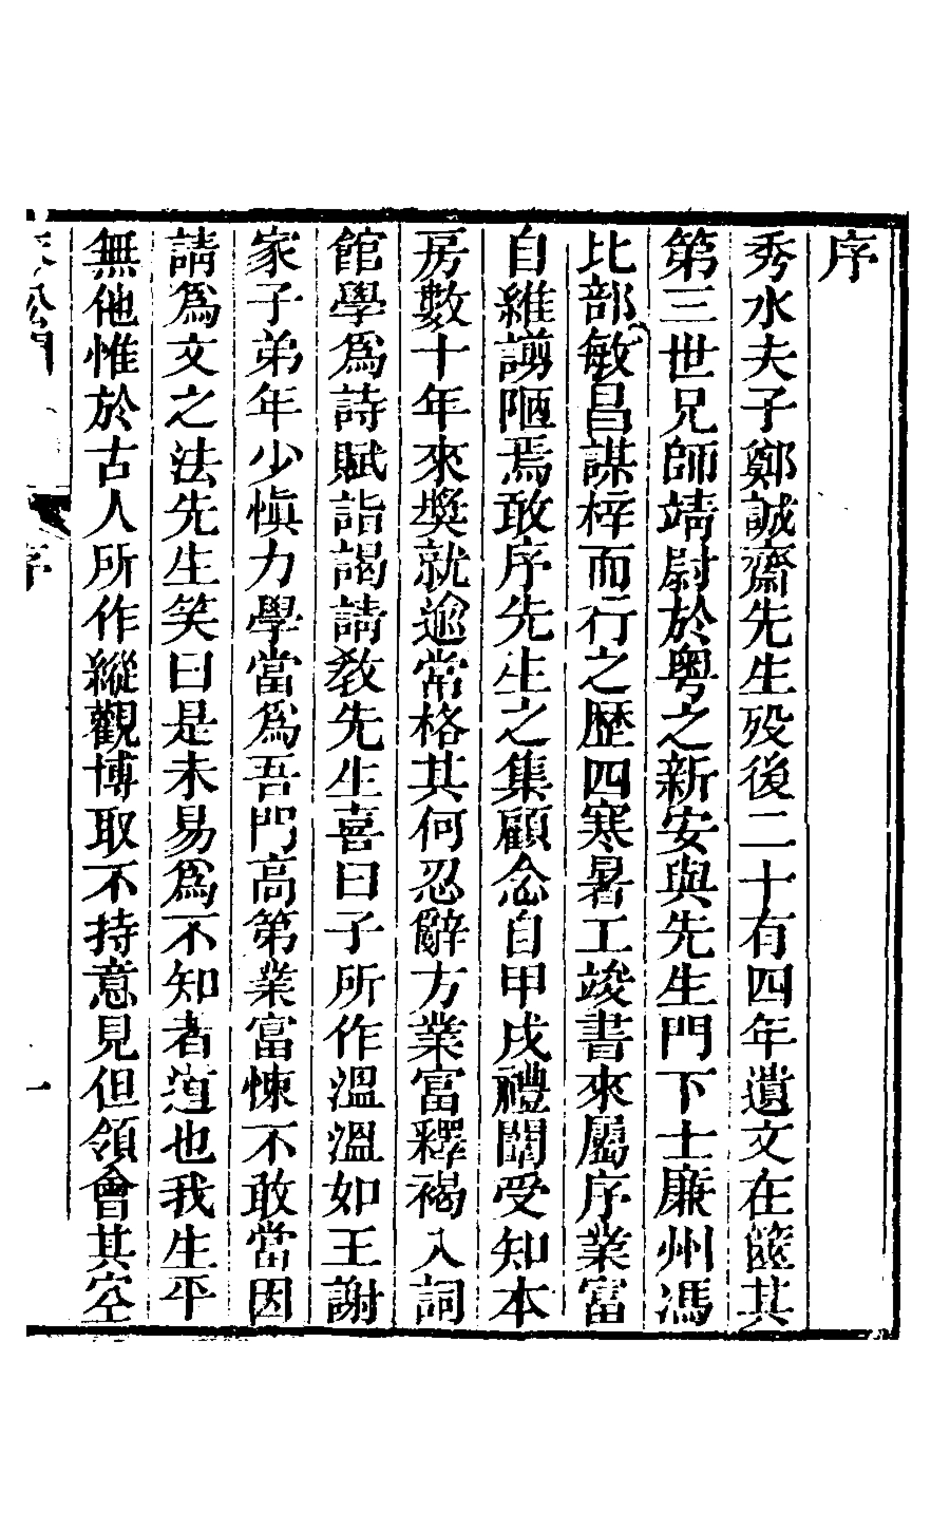 序
秀水夫子鄭誠齋先生歿後二十有四年遺文在篋其
第三世兄師靖尉於粵之新安與先生門下士廉州馮
比部敏昌謀梓而行之歷四寒暑工竣書來屬序業富
自維謭陋焉敢序先生之集顧念自甲戌禮闈受知本
房數十年來獎就逾常格其何忍辭方業富釋褐入詞
館學爲詩賦詣謁請教先生喜曰子所作溫溫如王謝
家子弟年少慎力學當爲吾門高第業富悚不敢當因
請爲文之法先生笑曰是未易爲不知者道也我生平
無他惟於古人所作縱觀博取不持意見但領會其空
序
一